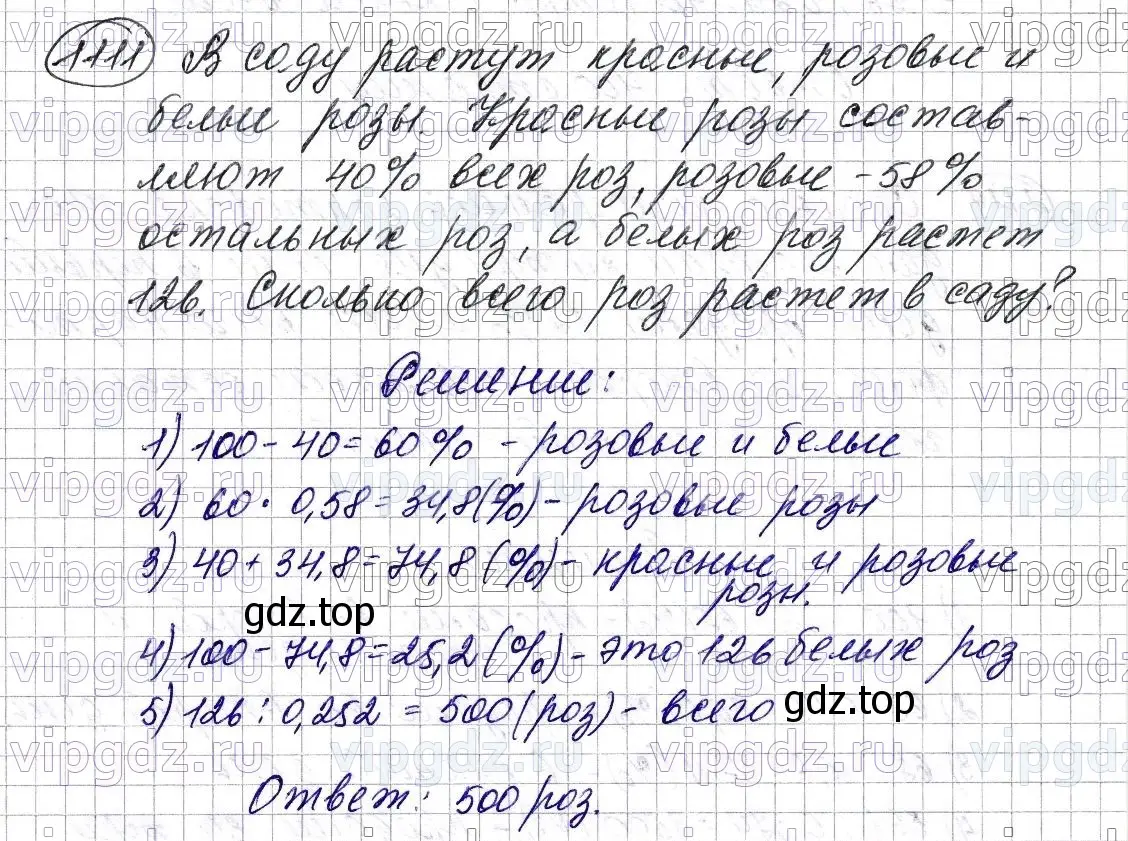 1111 В саду растут красные, розовые и
белые розы. Красные розы состав-
ляют 40% всех роз, розовые - 58%
остальных роз, а белых роз растет
126. Сколько всего роз растет в саду?
Решение:
1) 100 - 40 = 60% - розовые и белые
2) 60 · 0,58 = 34,8(%) - розовые розы
3) 40 + 34,8 = 74,8 (%) - красные и розовые
розы.
gdz.top
4) 100 - 74,8 = 25,2 (%) - это 126 белых роз
5) 126 : 0,252 = 500 (роз) - всего
gdz.top
Ответ: 500 роз.
vipgdz.ru